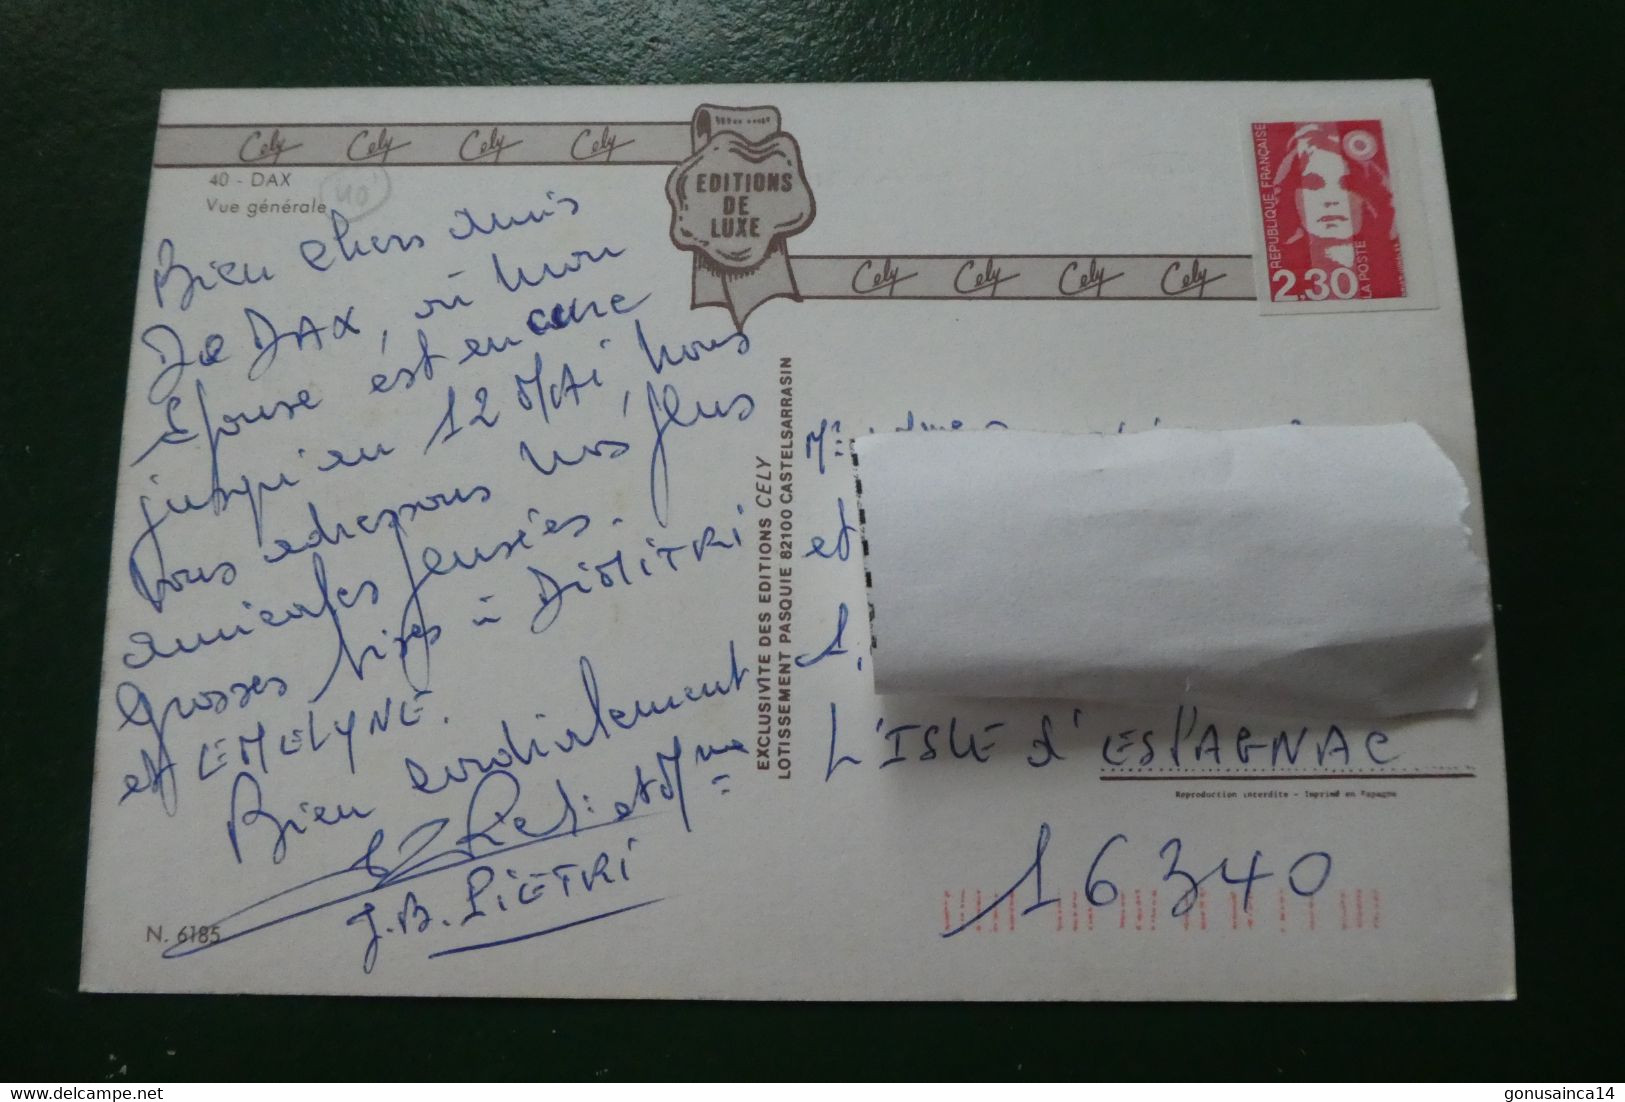 Cely Cely Cely Cely
EDITIONS
DE
LUXE
Cely Cely Cely Cely
40 - DAX
Vue générale
40
REPUBLIQUE FRANÇAISE
2,30
LA POSTE
Bien chers amis
De DAX, où mon
épouse est en cure
jusqu'au 12 MAI, nous
vous adressons nos plus
amicales pensées.
Grosses bises à DIMITRI
et EMELYNE.
Bien cordialement
et Mme
J.B. PIETRI
N. 6185
EXCLUSIVITE DES EDITIONS CELY
LOTISSEMENT PASQUIE 82100 CASTELSARRASIN
Mr
et
1,
L'ISLE d'ESPAGNAC
Reproduction interdite - Imprimé en Espagne
16340
gonusainca14